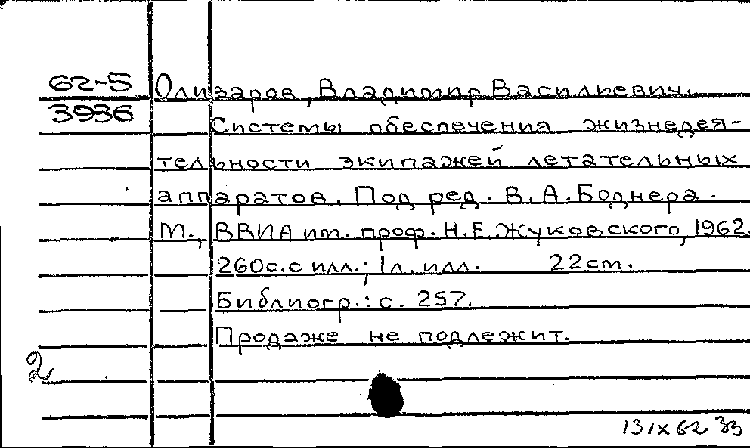 62-5 Олизаров, Владимир Васильевич.
3936
Системы обеспечения жизнедея-
тельности экипажей летательных
аппаратов. Под ред. В.А.Боднера.
М., ВВИА им. проф. Н.Е.Жуковского, 1962.
260с.с илл.; 1л. илл. 22см.
Библиогр.: с. 257.
Продаже не подлежит.
2
131х62